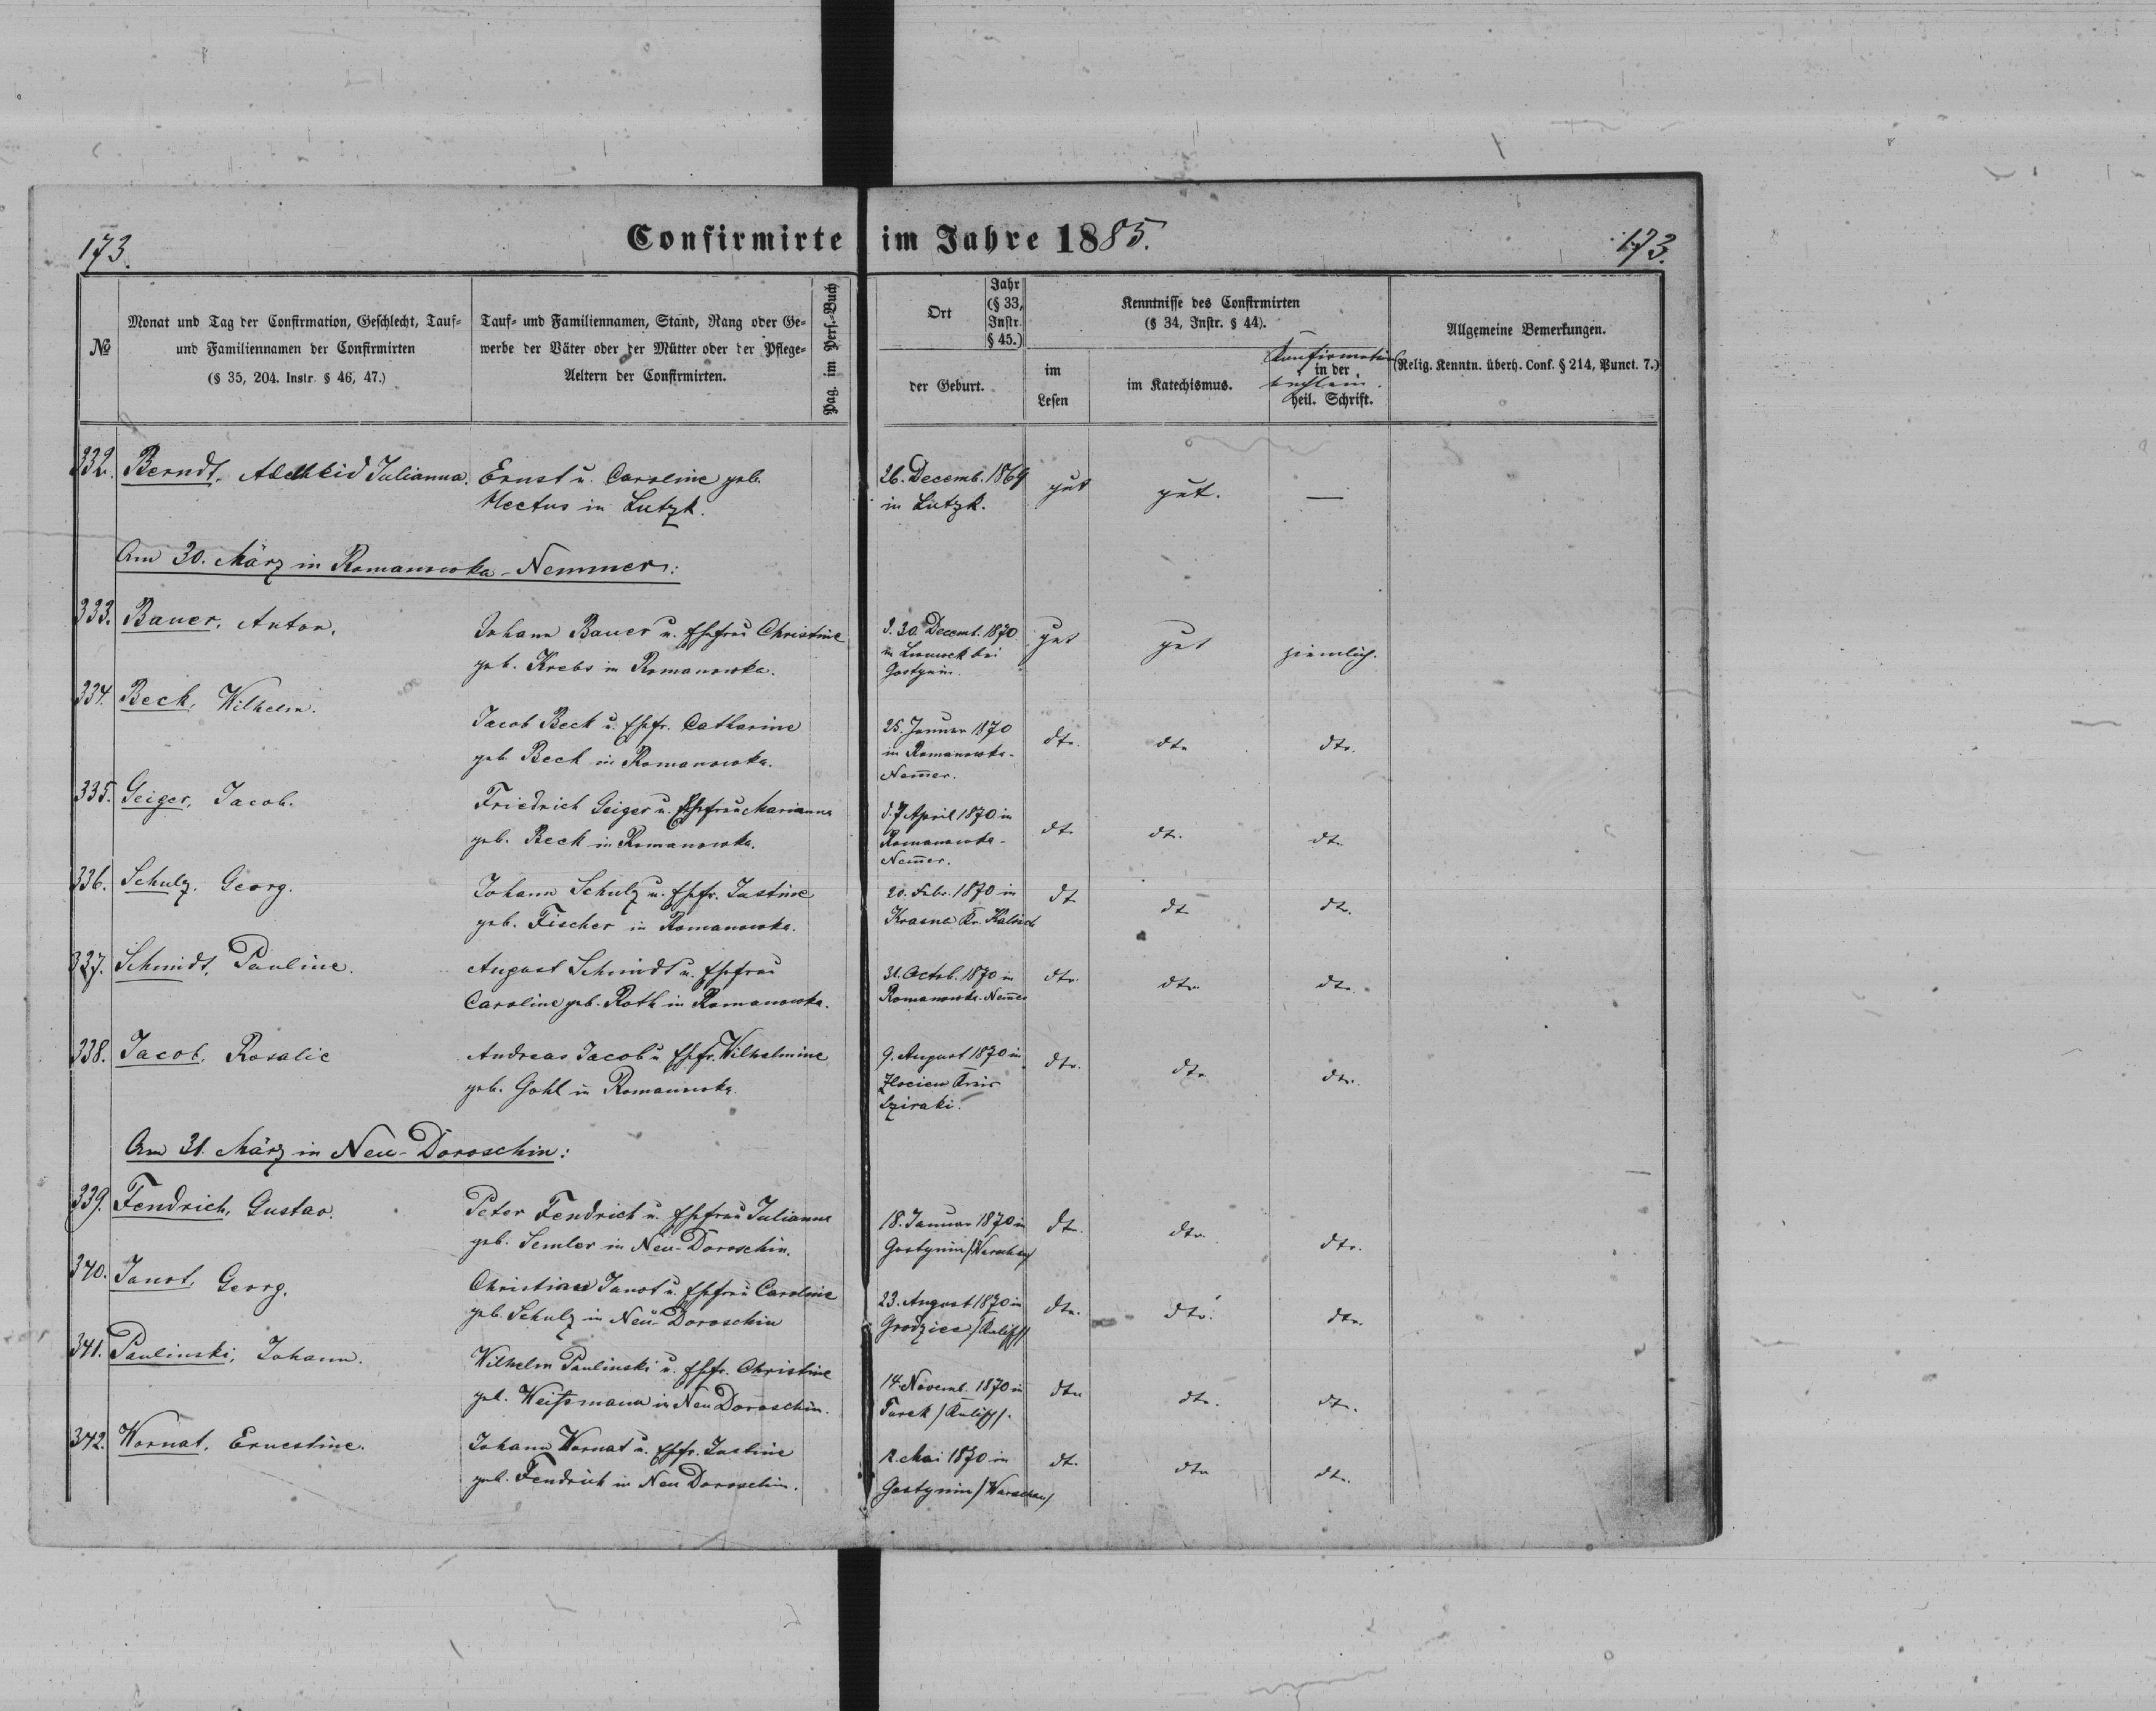 173.
Confirmirte im Jahre 1885.
173.
№
Monat und Tag der Confirmation, Geschlecht, Tauf-
und Familiennamen der Confirmirten
(§ 35, 204. Instr. § 46, 47.)
Tauf- und Familiennamen, Stand, Rang oder Ge-
werbe der Väter oder der Mütter oder der Pflege-
Aeltern der Confirmirten.
Pag. im Pers.-Buch
Ort
Jahr
(§ 33,
Instr.
§ 45.)
der Geburt.
Kenntnisse des Confirmirten
(§ 34, Instr. § 44).
im
Lesen
im Katechismus.
Confirmation
in der
heil. Schrift.
Allgemeine Bemerkungen.
(Relig. Kenntn. überh. Conf. § 214, Punct. 7.)
332. Berndt, Adelheid Julianna. Ernst u. Caroline geb. 26. Decemb. 1869 gut gut. —
Mectus in Lutzk. in Lutzk.
Am 30. März in Romanowka-Nemmer:
333. Bauer, Anton. Johann Bauer u. Ehefrau Christine d. 30. Decemb. 1870 gut gut ziemlich.
geb. Krebs in Romanowka. in bei
Gostynin.
334. Beck, Wilhelm. Jacob Beck u. Ehefr. Catharine 25. Januar 1870 dto. dto dto.
geb. Beck in Romanowka. in Romanowka-
Nem̅er.
335. Geiger, Jacob. Friedrich Geiger u. Ehefrau Marianna d. 7 April 1870 in dt. dt. dto
geb. Beck in Romanowka. Romanowka-
Nem̅er.
336. Schulz, Georg. Johann Schulz u. Ehefr. Justine 20. Febr. 1870 in dt dt. dto.
geb. Fischer in Romanowka. Krasne Kr. Kalisch
337. Schmidt, Pauline. August Schmidt u. Ehefrau 31. Octob. 1870 in dto. dto. dto.
Caroline geb. Roth in Romanowka. Romanowka-Nem̅er
338. Jacob, Rosalie Andreas Jacob u. Ehefr. Wilhelmine 9. August 1870 in dto. dto. dto.
geb. Gohl in Romanowka. Kreis
Am 31. März in Neu-Doroschin:
339. Fendrich, Gustav. Peter Fendrich u. Ehefrau Julianne 18. Januar 1870 in dto. dto. dto.
geb. Semler in Neu-Doroschin. Gostynin /Warschau/
340. Janot, Georg. Christian Janot u. Ehefrau Caroline 23. August 1870 in dto. dto. dto.
geb. Schulz in Neu-Doroschin Grodziec /Kalisch/
341. Paulinski, Johann. Wilhelm Paulinski u. Ehefr. Christine 14 Novemb. 1870 in dto dto. dto.
geb. Weissmann in Neu Doroschin. Turek /Kalisch/.
342. Wornat, Ernestine. Johann Wornat u. Ehefr. Justine 2. Mai 1870 in dt. dto dto.
geb. Fendrich in Neu Doroschin. Gostynin /Warschau/